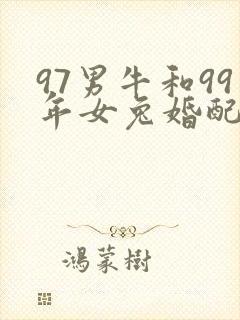 97男牛和99
年女兔婚配
鸿蒙樹